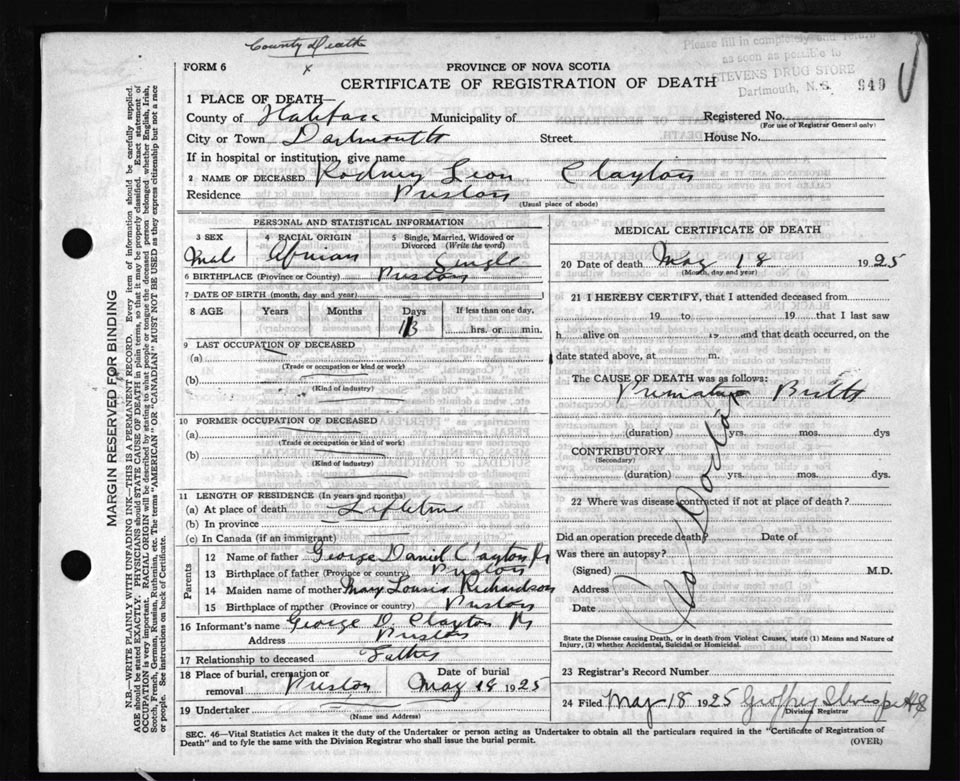 County Death
Please fill in completely and return
as soon as possible to
STEVENS DRUG STORE
Dartmouth, N.S.
949
FORM 6
x
PROVINCE OF NOVA SCOTIA
CERTIFICATE OF REGISTRATION OF DEATH
1 PLACE OF DEATH—
County of Halifax Municipality of Registered No.
(For use of Registrar General only)
City or Town Dartmouth Street House No.
If in hospital or institution, give name
2 NAME OF DECEASED Rodney Leon Clayton
Residence Preston
(Usual place of abode)
PERSONAL AND STATISTICAL INFORMATION
3 SEX 4 RACIAL ORIGIN 5 Single, Married, Widowed or Divorced (Write the word)
Male African Single
6 BIRTHPLACE (Province or Country) Preston
7 DATE OF BIRTH (month, day and year)
8 AGE Years Months Days If less than one day,
hrs. or min.
9 LAST OCCUPATION OF DECEASED
(a)
(Trade or occupation or kind or work)
(b)
(Kind of industry)
10 FORMER OCCUPATION OF DECEASED
(a)
(Trade or occupation or kind of work)
(b)
(Kind of industry)
11 LENGTH OF RESIDENCE (In years and months)
(a) At place of death Lifetime
(b) In province
(c) In Canada (if an immigrant)
Parents
12 Name of father George Daniel Clayton Jr
13 Birthplace of father (Province or country) Preston
14 Maiden name of mother Mary Louisa Richardson
15 Birthplace of mother (Province or country) Preston
16 Informant's name George D. Clayton Jr
Address Preston
17 Relationship to deceased Father
18 Place of burial, cremation or removal Preston
Date of burial May 18 1925
19 Undertaker
(Name and Address)
MEDICAL CERTIFICATE OF DEATH
20 Date of death May 18 1925
(Month, day and year)
21 I HEREBY CERTIFY, that I attended deceased from
19 to 19 that I last saw
h alive on 19 and that death occurred, on the
date stated above, at m.
The CAUSE OF DEATH was as follows:
Premature Birth
(duration) yrs. mos. dys
CONTRIBUTORY
(Secondary)
(duration) yrs. mos. dys
22 Where was disease contracted if not at place of death?
Did an operation precede death? Date of
Was there an autopsy?
(Signed) M.D.
Address
Date
No Doctor
State the Disease causing Death, or in death from Violent Causes, state (1) Means and Nature of
Injury, (2) whether Accidental, Suicidal or Homicidal.
23 Registrar's Record Number
24 Filed May 18 1925 Geoffrey
Division Registrar
SEC. 46—Vital Statistics Act makes it the duty of the Undertaker or person acting as Undertaker to obtain all the particulars required in the "Certificate of Registration of
Death" and to fyle the same with the Division Registrar who shall issue the burial permit.
(OVER)
MARGIN RESERVED FOR BINDING
N.B.—WRITE PLAINLY WITH UNFADING INK—THIS IS A PERMANENT RECORD. Every item of information should be carefully supplied.
AGE should be stated EXACTLY. PHYSICIANS should STATE CAUSE OF DEATH in plain terms, so that it may be properly classified. Exact statement of
OCCUPATION is very important. RACIAL ORIGIN will be described by stating to what people or tongue the deceased person belonged whether English, Irish,
Scotch, French, German, Russian, Ruthenian, etc. The terms "AMERICAN" OR "CANADIAN" MUST NOT BE USED as they express citizenship but not a race
or people. See instructions on back of Certificate.